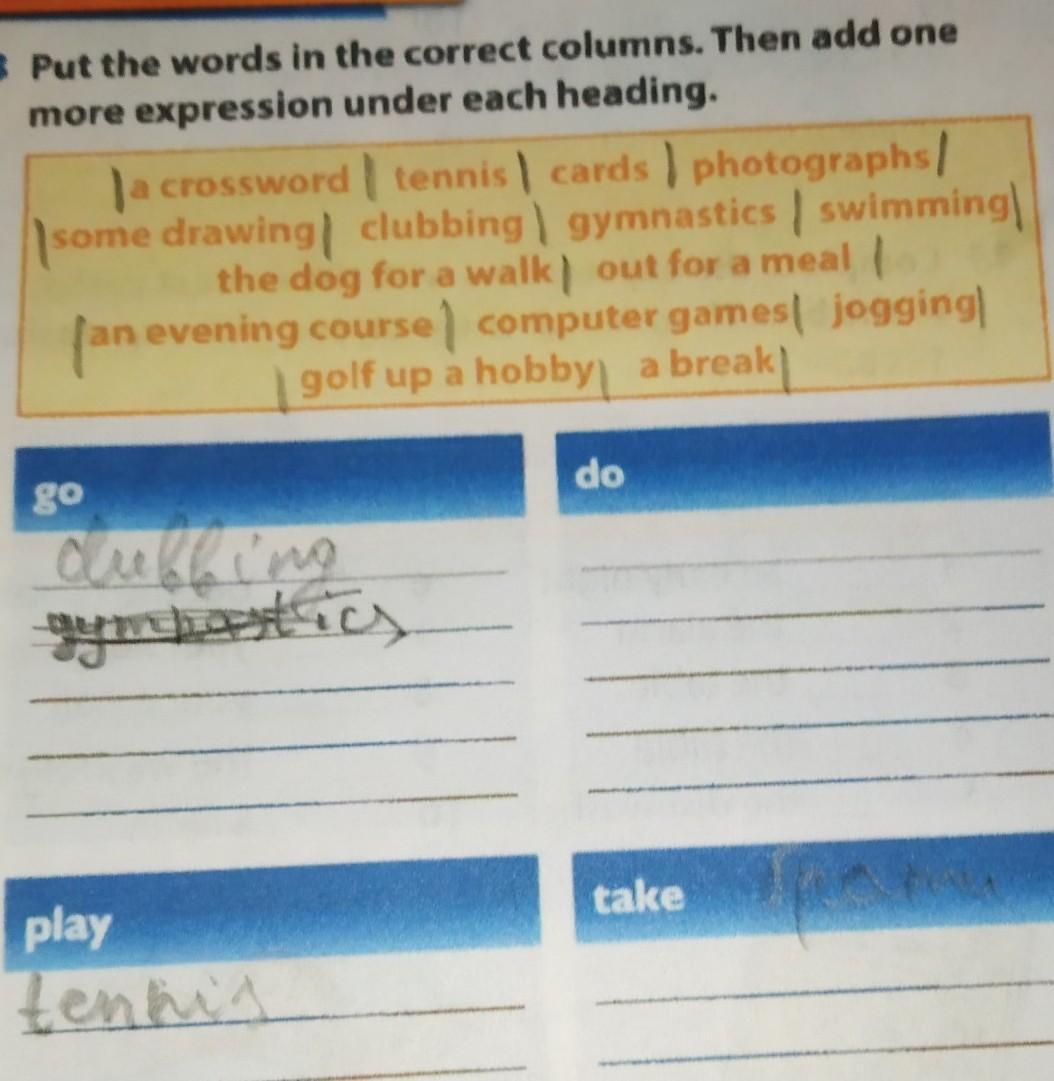 3 Put the words in the correct columns. Then add one
more expression under each heading.
a crossword tennis cards photographs
some drawing clubbing gymnastics swimming
the dog for a walk out for a meal
an evening course computer games jogging
golf up a hobby a break
go
do
clubbing
gymnastics
play
take
tennis